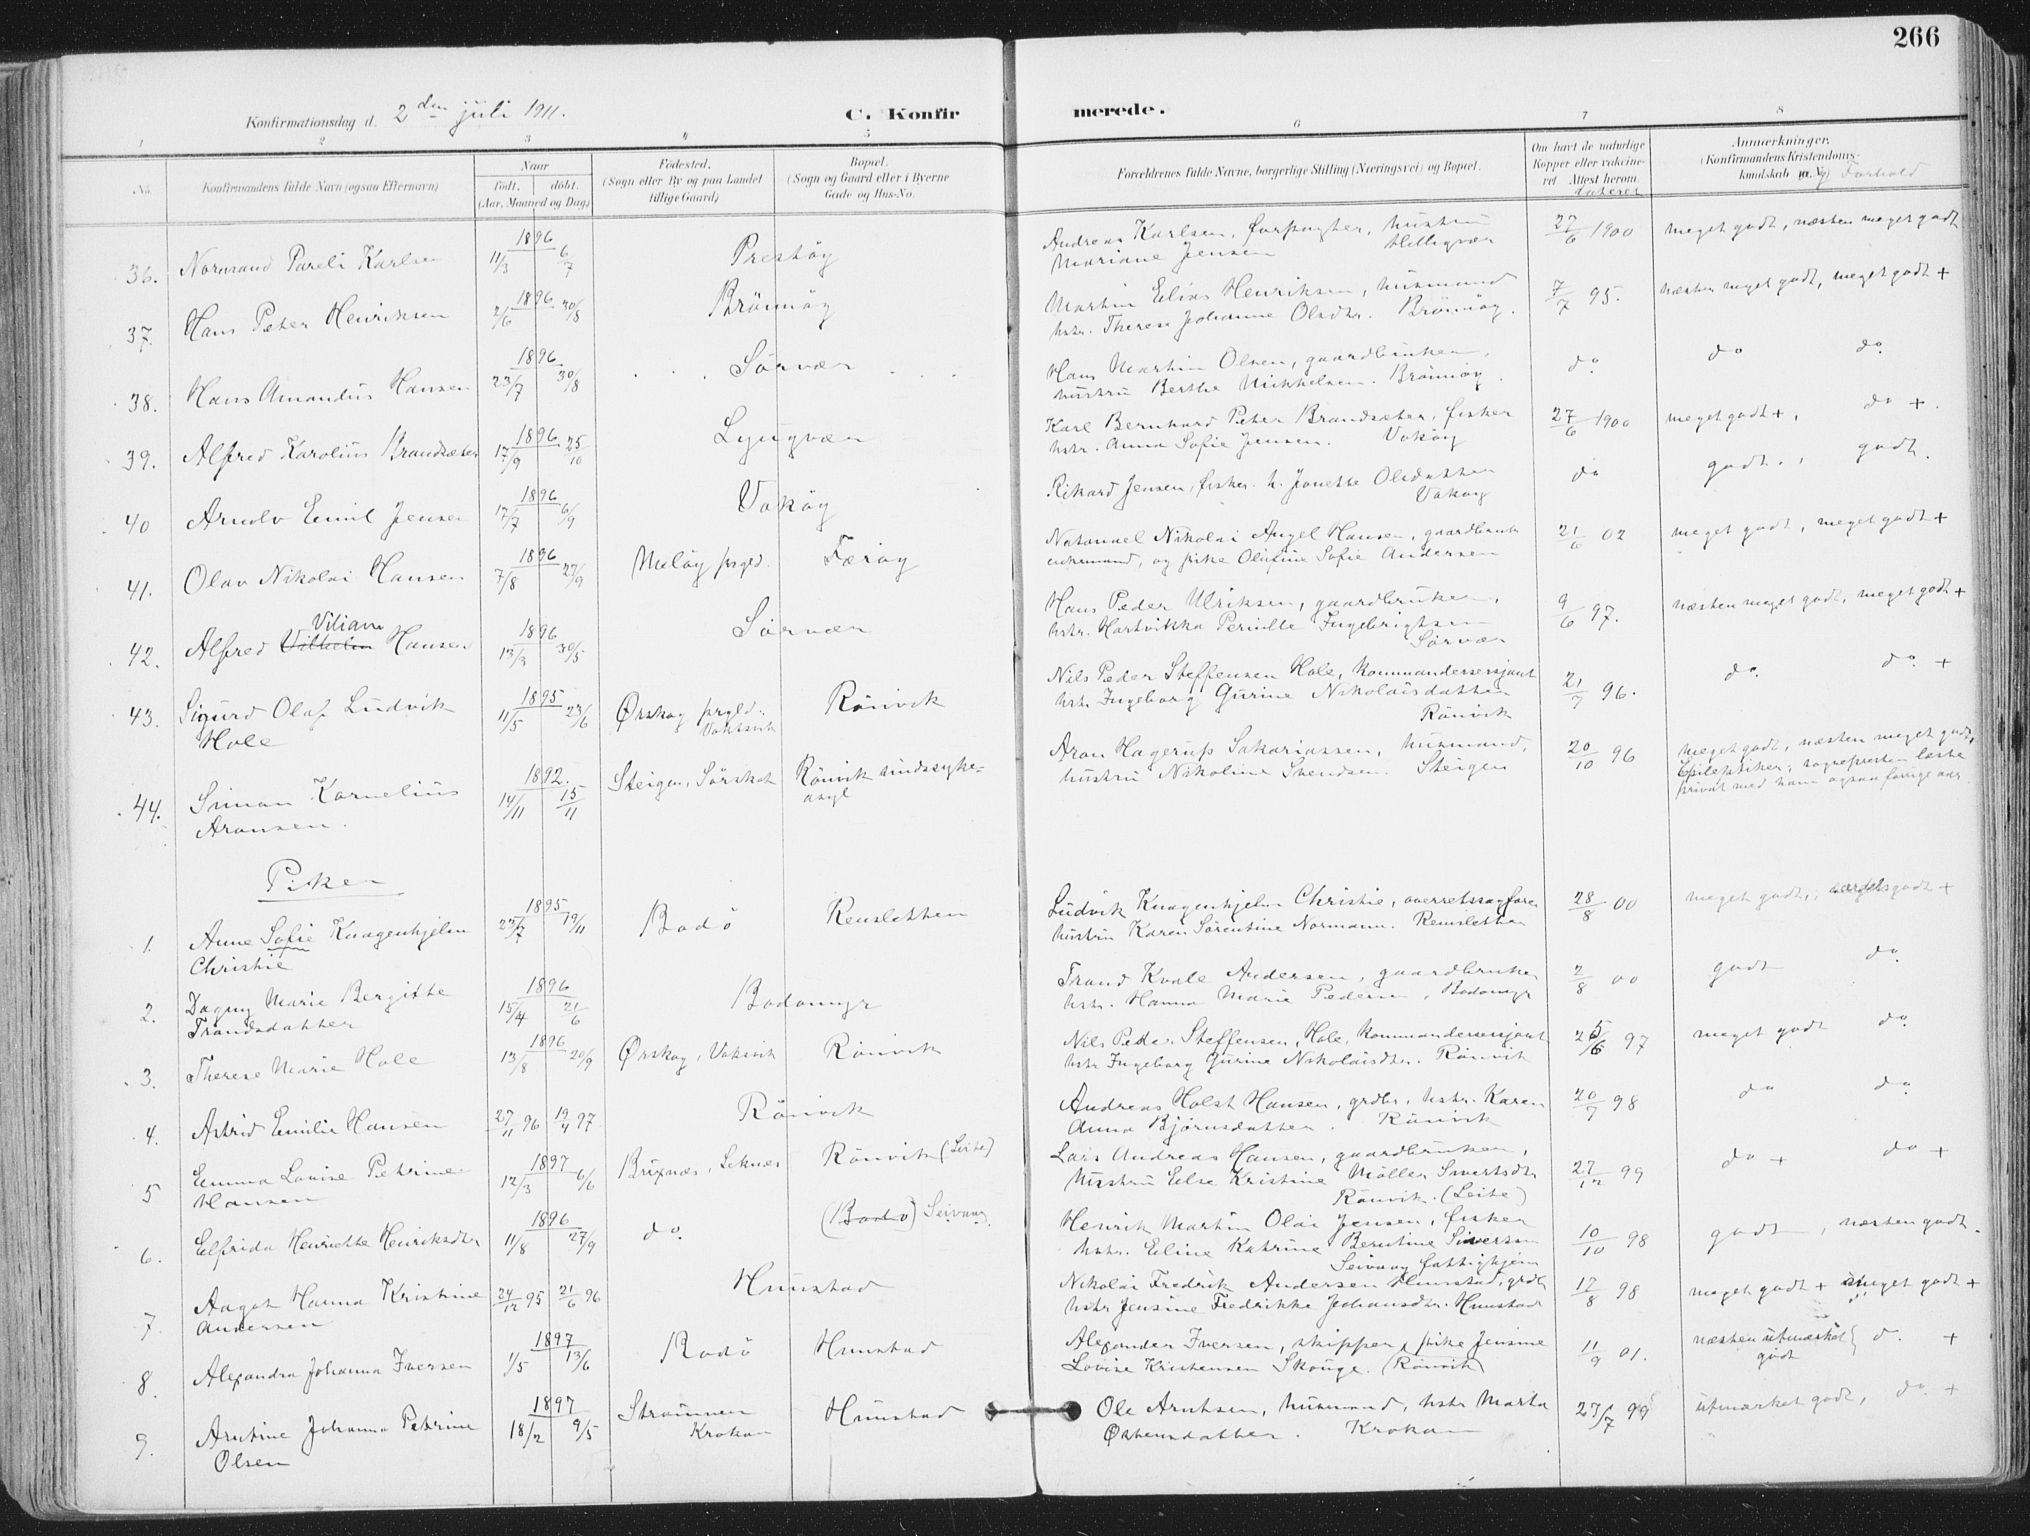 266
Konfirmationsdag d. 2den juli 1911.
C. Konfirmerede.
1 2 3 4 5 6 7 8
No.
Konfirmandens fulde Navn (ogsaa Efternavn)
Naar
Født. døbt.
(Aar, Maaned og Dag)
Fødested.
(Sogn eller By og paa Landet
tillige Gaard)
Bopæl.
(Sogn og Gaard eller i Byerne
Gade og Hus-No.
Forældrenes fulde Navne, borgerlige Stilling (Næringsvei) og Bopæl.
Om havt de naturlige
Kopper eller vakcineret
Attest herom
dateret
Anmerkninger.
(Konfirmandens Kristendomskundskab
og Forhold
36. Normand Pareli Karlsen 1896 11/3 6/7 Prestøy
Andreas Karlsen, forpagter, hustru
Mariane Jensen Helligvær
27/6 1900 meget godt, næsten meget godt
37. Hans Peter Henriksen 1896 2/6 30/8 Brönnöy
Martin Elias Henriksen, husmand
hstr. Therese Johanne Olsdtr. Brönnöy.
7/7 95. næsten meget godt, meget godt +
38. Hans Amandus Hansen 1896 23/7 30/8 Sørvær
Hans Martin Olsen, gaardbruker,
hustru Berthe Mikkelsen. Brönnöy.
do do do.
39. Alfred Karolius Brandsæter 1896 17/9 25/10 Lyngvær
Karl Bernhard Peter Brandsæter, fisker
hstr. Anna Sofie Jensen. Vokøy
27/6 1900 meget godt +, do +.
40 Arnolv Emil Jensen 1896 17/7 6/9 Vokøy
Rikard Jensen, fisker. h. Jonette Olsdatter
Vokøy
do godt., godt.
41. Olav Nikolai Hansen 1896 7/8 27/9 Meløy prgld. Færøy
Natanael Nikolai Angel Hansen, gaardbruk
enkemand, og pike Olufine Sofie Andersen
21/6 02 meget godt, meget godt +
Viliam
42. Alfred Vilhelm Hansen 1896 13/3 30/5 Sørvær
Hans Peder Ulriksen, gaardbruker,
hstr. Hartvikka Pernille Ingebrigtsen
Sørvær
9/6 97. næsten meget godt, meget godt +
43. Sigurd Olaf Ludvik
Hole 1895 11/5 23/6 Ørskog prgld. Rönvik
Nils Peder Steffensen Hole, kommandersersjant
hstr. Ingeborg Gurine Nikolaisdatter
Rönvik
21/7 96. do. do. +
44. Simon Kornelius
Aronsen. 1892. 14/11 15/11 Steigen, Sørskot Rönvik sindssykeasyl
Aron Hagerup Sakariassen, husmand,
hustru Nikoline Svendsen. Steigen
20/10 96 meget godt, næsten meget godt,
Epileptiker; sognepresten læste
privat med ham ogsaa forrige aar
Piker
1. Anne Sofie Knagenhjelm
Christie 1895 27/7 19/11 Bodø Rensletten
Ludvik Knagenhjelm Christie, overretssagfører
hustru Karen Sørentine Normann. Rensletten
28/8 00 meget godt, godt +
2. Dagny Marie Bergitte
Trondsdatter 1896 15/4 21/6 Bodomyr
Trond Kvale Andersen, gaardbruker
hstr. Hanna Marie Pedersen, Bodomyr
2/8 00 godt do.
3. Therese Marie Hole 1896 13/8 20/9 Ørskog, Vaksvik Rönvik
Nils Peder Steffensen, Hole, kommandersersjant
hstr Ingeborg Gurine Nikolaisdtr. Rönvik
25/6 97 meget godt do.
4. Astrid Emilie Hansen 27/11 96 19/4 97 Rönvik
Andreas Holst Hansen, grdbr, hstr. Karen
Anna Bjørnsdatter. Rönvik
20/7 98 do do.
5 Emma Lovise Petrine
Hansen 1897 12/3 6/6 Buxnæs, Leknæs Rönvik (Leite)
Lars Andreas Hansen, gaardbruker,
hustru Else Kristine Möller Sivertsdtr
Rönvik. (Leite)
27/12 99 do + do +
6. Elfrida Henriette Henriksdtr 1896 11/8 27/9 do. (Bodø) Seivaag.
Henrik Martin Olai Jensen, fisker
hstr. Eline Katrine Berntine Siversen
Seivaag fattighjem
10/10 98 godt, næsten godt.
7. Aagot Hanna Kristine
Andersen 24/12 95 21/6 96 Hunstad
Nikolai Fredrik Andersen Hunstad, grdb
hstr Jensine Fredrikke Johansdtr. Hunstad
12/8 98 meget godt + meget godt +
8. Alexandra Johanna Iversen 1897 1/5 13/6 Bodø Hunstad
Alexander Iversen, skipper, pike Jensine
Lovise Kristensen Skouge. (Rönvik)
11/9 01. næsten utmerket
godt do. +
9. Arntine Johanna Petrine
Olsen 1897 18/2 9/5 Strømmen
Krokan Hunstad
Ole Arntsen, husmand, hstr Marta
Østensdatter. Krokan
27/7 99 utmerket godt, do. +